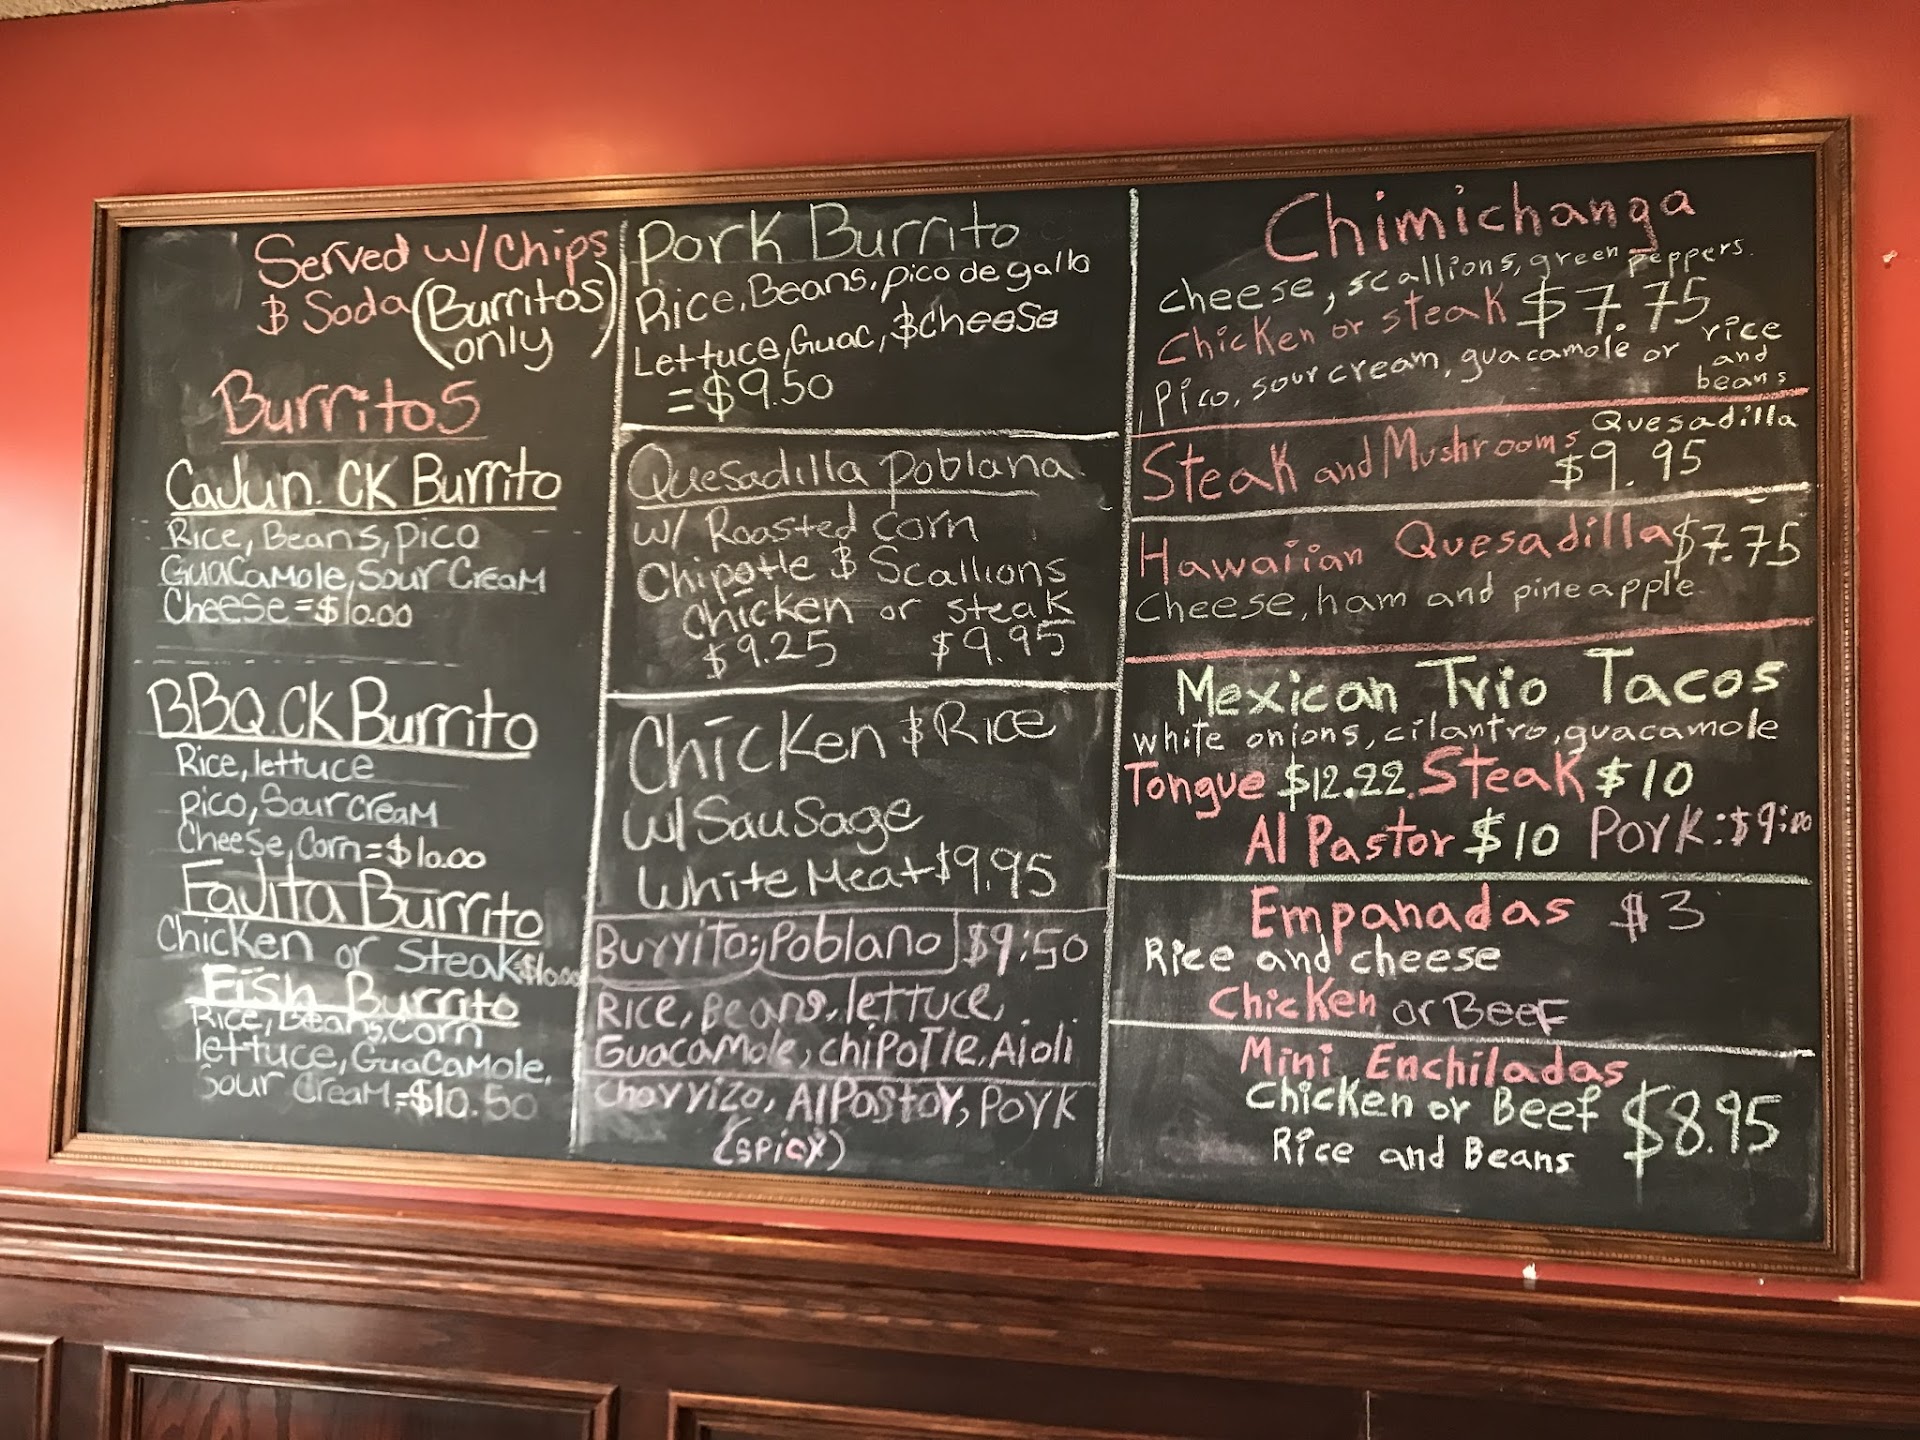 Served w/Chips
& Soda (Burritos
only)
Burritos
Cajun. CK Burrito
Rice, Beans, pico
Guacamole, Sour Cream
Cheese = $10.00
BBQ. CK Burrito
Rice, lettuce
pico, Sour cream
Cheese, Corn = $10.00
Fajita Burrito
Chicken or Steak $10.00
Fish Burrito
Rice, Beans, Corn
lettuce, Guacamole,
Sour Cream = $10.50
Pork Burrito
Rice, Beans, pico de gallo
Lettuce, Guac, & cheese
= $9.50
Quesadilla poblana
w/ Roasted corn
Chipotle & Scallions
chicken or steak
$9.25 $9.95
Chicken & Rice
w/ Sausage
White Meat $9.95
Burrito: Poblano $9:50
Rice, Beans, lettuce,
Guacamole, chipotle, Aioli
Chorrizo, Al Pastor, Pork
(spicy)
Chimichanga
cheese, scallions, green peppers.
Chicken or steak $7.75
Pico, sour cream, guacamole or rice
and
beans
Quesadilla
Steak and Mushrooms $9.95
Hawaiian Quesadilla $7.75
cheese, ham and pineapple
Mexican Trio Tacos
white onions, cilantro, guacamole
Tongue $12.22. Steak $10
Al Pastor $10 Pork: $9:00
Empanadas $3
Rice and cheese
Chicken or Beef
Mini Enchiladas
Chicken or Beef $8.95
Rice and Beans